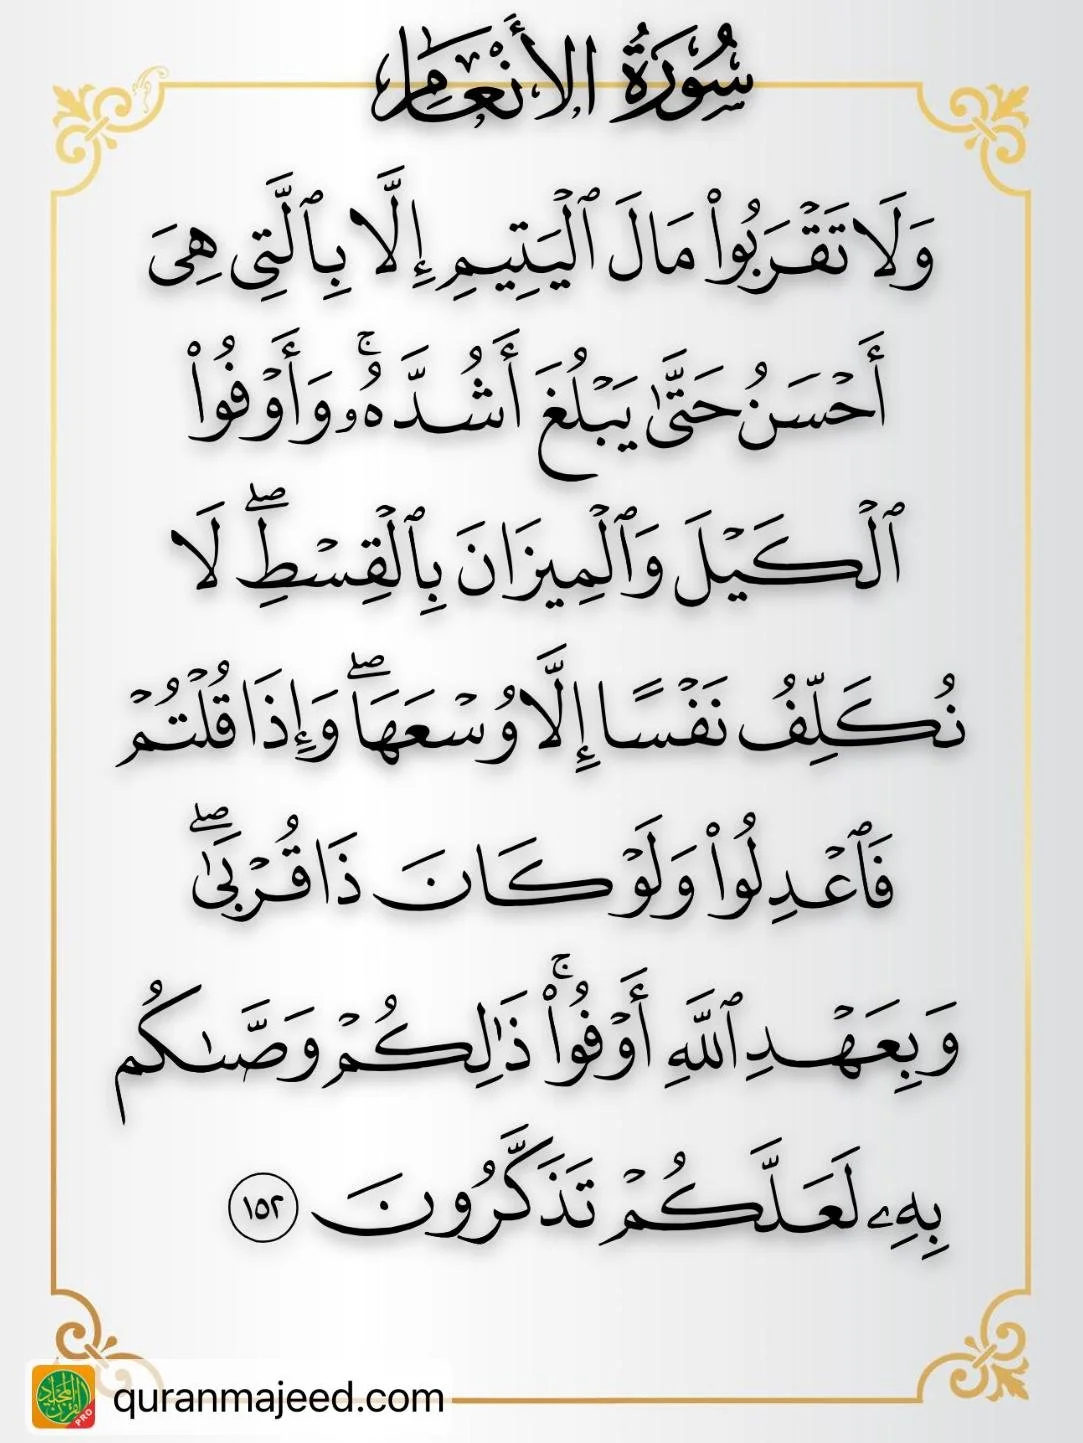 سُورَةُ الأَنْعَامِ
وَلَا تَقْرَبُوا۟ مَالَ ٱلْيَتِيمِ إِلَّا بِٱلَّتِى هِىَ
أَحْسَنُ حَتَّىٰ يَبْلُغَ أَشُدَّهُۥ ۚ وَأَوْفُوا۟
ٱلْكَيْلَ وَٱلْمِيزَانَ بِٱلْقِسْطِ ۖ لَا
نُكَلِّفُ نَفْسًا إِلَّا وُسْعَهَا ۖ وَإِذَا قُلْتُمْ
فَٱعْدِلُوا۟ وَلَوْ كَانَ ذَا قُرْبَىٰ ۖ
وَبِعَهْدِ ٱللَّهِ أَوْفُوا۟ ۚ ذَٰلِكُمْ وَصَّىٰكُم
بِهِۦ لَعَلَّكُمْ تَذَكَّرُونَ ١٥٢
quranmajeed.com